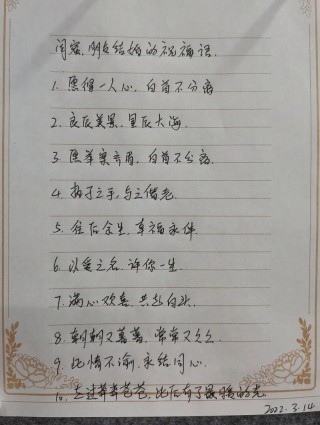 闺密、朋友结婚的祝福语.
1. 愿得一人心，白首不分离
2. 良辰美景，星辰大海.
3. 愿举案齐眉，白首不分离.
4. 执子之手，与之偕老.
5. 往后余生，幸福永伴
6. 以爱之名，许你一生.
7. 满心欢喜，共赴白头.
8. 朝朝又暮暮，常常又久久.
9. 此情不渝，永结同心.
10. 走过莽莽苍苍，此后有了最暖的光.
2022.3.14